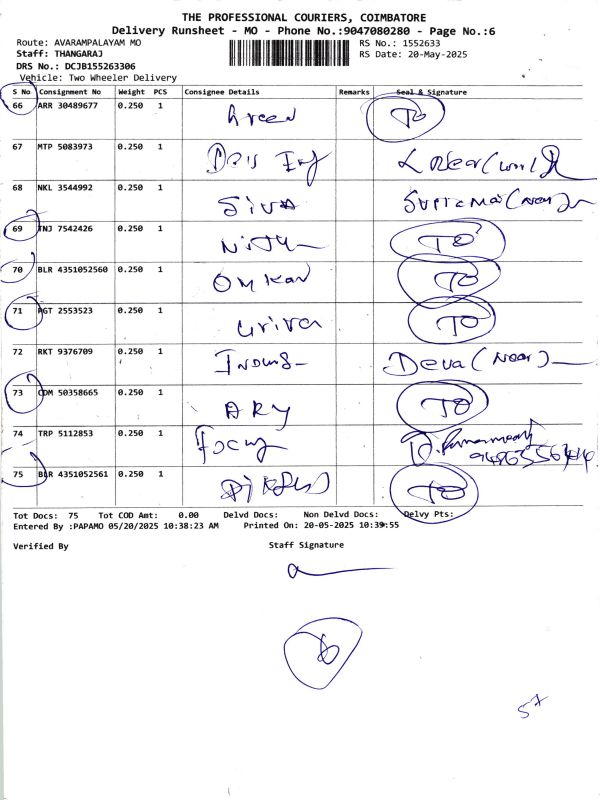 THE PROFESSIONAL COURIERS, COIMBATORE
Delivery Runsheet - MO - Phone No.:9047080280 - Page No.:6
Route: AVARAMPALAYAM MO RS No.: 1552633
Staff: THANGARAJ RS Date: 20-May-2025
DRS No.: DCJB155263306
Vehicle: Two Wheeler Delivery
S No Consignment No Weight PCS Consignee Details Remarks Seal & Signature
66 ARR 30489677 0.250 1 Green TO
67 MTP 5083973 0.250 1
68 NKL 3544992 0.250 1 SIVA
69 TNJ 7542426 0.250 1 TO
70 BLR 4351052560 0.250 1 Omkar TO
71 PGT 2553523 0.250 1 TO
72 RKT 9376709 0.250 1 Deva (Near)
73 CDM 50358665 0.250 1 ARY TO
74 TRP 5112853 0.250 1 Focus
75 BLR 4351052561 0.250 1 TO
Tot Docs: 75 Tot COD Amt: 0.00 Delvd Docs: Non Delvd Docs: Delvy Pts:
Entered By :PAPAMO 05/20/2025 10:38:23 AM Printed On: 20-05-2025 10:39:55
Verified By Staff Signature
57